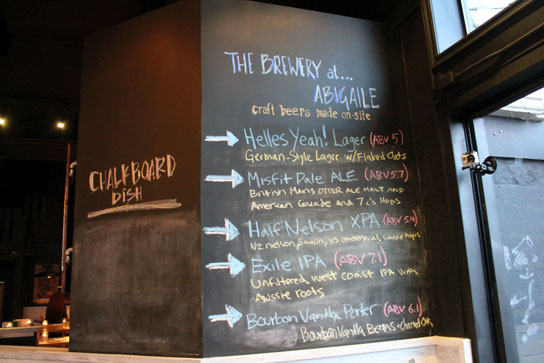 THE BREWERY at...
ABIGAILE
craft beers made on-site
Helles Yeah! Lager (ABV 5)
German-Style Lager w/Flaked Oats
Misfit Pale ALE (ABV 5.7)
British Maris OTTER ALE MALT AND
American Cascade and 7 c's Hops
Half Nelson XPA (ABV 5.4)
NZ nelson, Sauvin, US centennial, simcoe hops
Exile IPA (ABV 7.1)
Unfiltered west coast IPA with
Aussie roots
Bourbon Vanilla Porter (ABV 6.1)
Bourbon Vanilla Beans + Charred Oak
CHALKBOARD
DISH